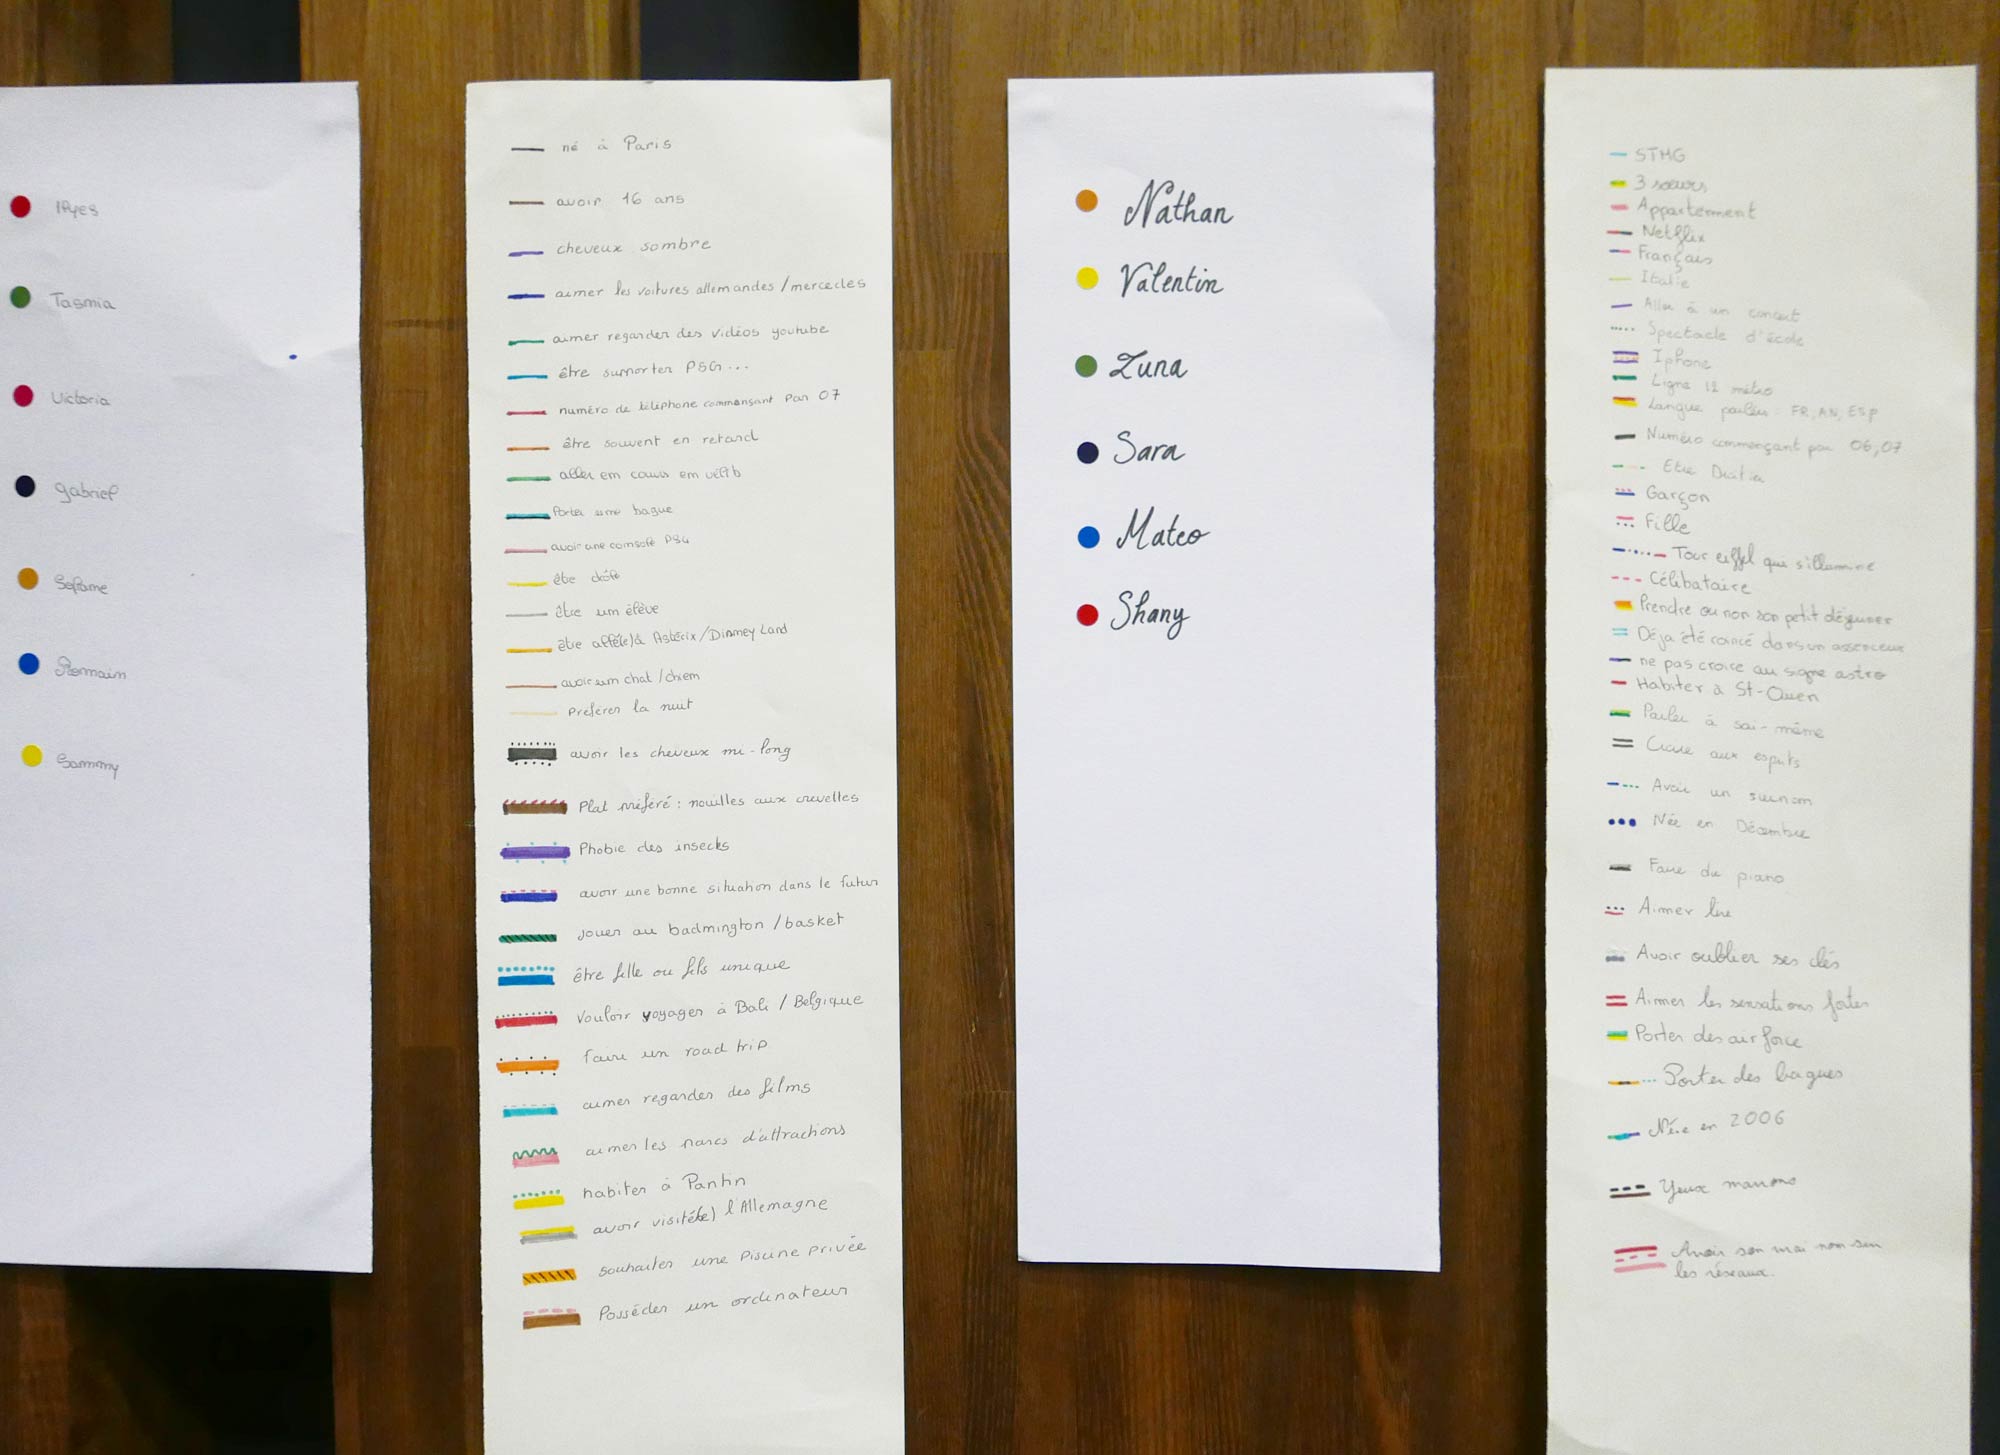 Ilyes
Tasmia
Victoria
gabriel
Sofiane
Romain
Sammy
né à Paris
avoir 16 ans
cheveux sombre
aimer les voitures allemandes / mercedes
aimer regarder des vidéos youtube
être suporter PSG...
numéro de téléphone commençant par 07
être souvent en retard
aller en cours en vélib
Porter une bague
avoir une console PS4
être drôle
être un élève
être allé(e) à Astérix / Disney Land
avoir un chat / chien
Préférer la nuit
avoir les cheveux mi-long
Plat préféré : nouilles aux crevettes
Phobie des insects
avoir une bonne situation dans le futur
jouer au badmington / basket
être fille ou fils unique
vouloir voyager à Bali / Belgique
faire un road trip
aimer regarder des films
aimer les parcs d'attractions
habiter à Pantin
avoir visité(e) l'Allemagne
souhaiter une piscine privée
Posséder un ordinateur
Nathan
Valentin
Luna
Sara
Mateo
Shany
STMG
3 sœurs
Appartement
Netflix
Français
Italie
Aller à un concert
Spectacle d'école
Iphone
Ligne 12 métro
Langue parlée : FR, AN, ESP
Numéro commençant par 06, 07
Etre Droitier
Garçon
Fille
Tour eiffel qui s'illumine
Célibataire
Prendre ou non son petit déjeuner
Déja été coincé dans un assenceur
ne pas croire au signe astro
Habiter à St-Ouen
Parler à soi-même
Croire aux esprits
Avoir un surnom
Née en Décembre
Faire du piano
Aimer lire
Avoir oublier ses clés
Aimer les sensations fortes
Porter des air force
Porter des bagues
Né.e en 2006
Yeux marrons
Avoir son vrai nom sur
les réseaux.